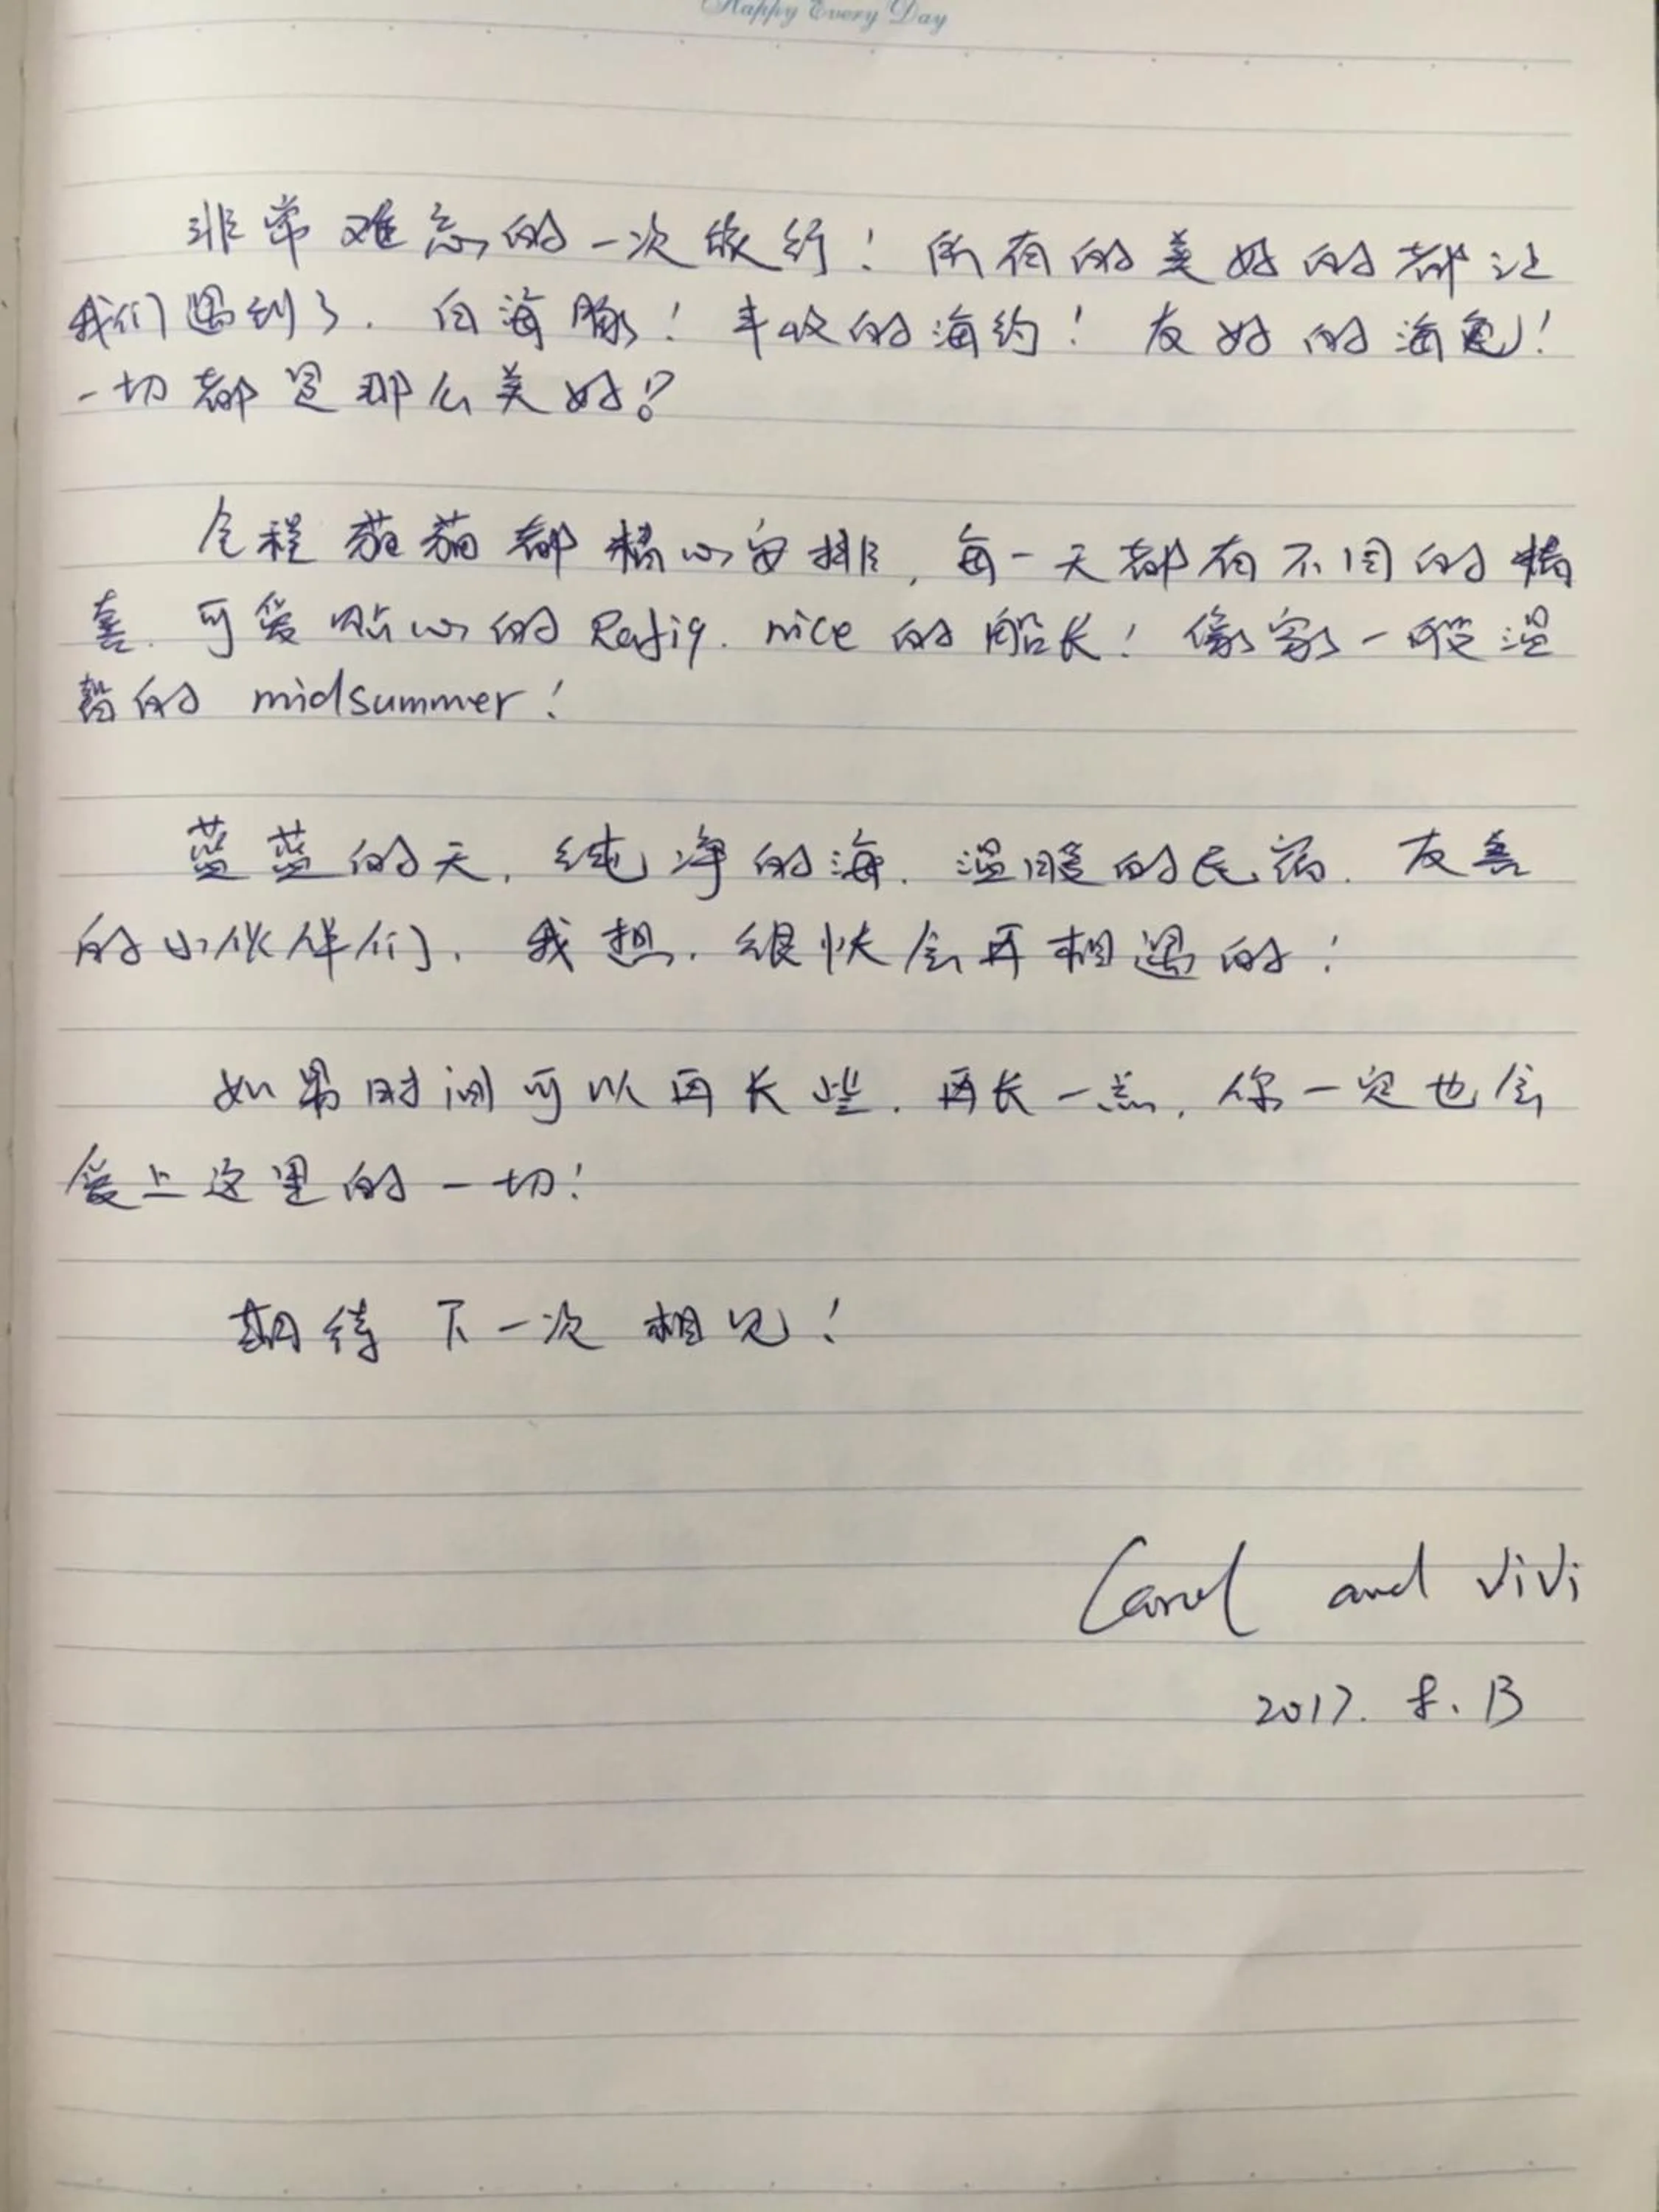 Happy Every Day
非常难忘的一次旅行！所有的美好的都让
我们遇到了．白海豚！丰收的海钓！友好的海龟！
一切都是那么美好！
全程茄茄都精心安排，每一天都有不同的精
喜．可爱贴心的Rafiq．nice的船长！像家一般温
馨的 midsummer！
蓝蓝的天，纯净的海．温暖的民宿．友善
的小伙伴们．我想．很快会再相遇的！
如果时间可以再长些．再长一点，你一定也会
爱上这里的一切！
期待下一次相见！
Carol and ViVi
2017. 8. 13